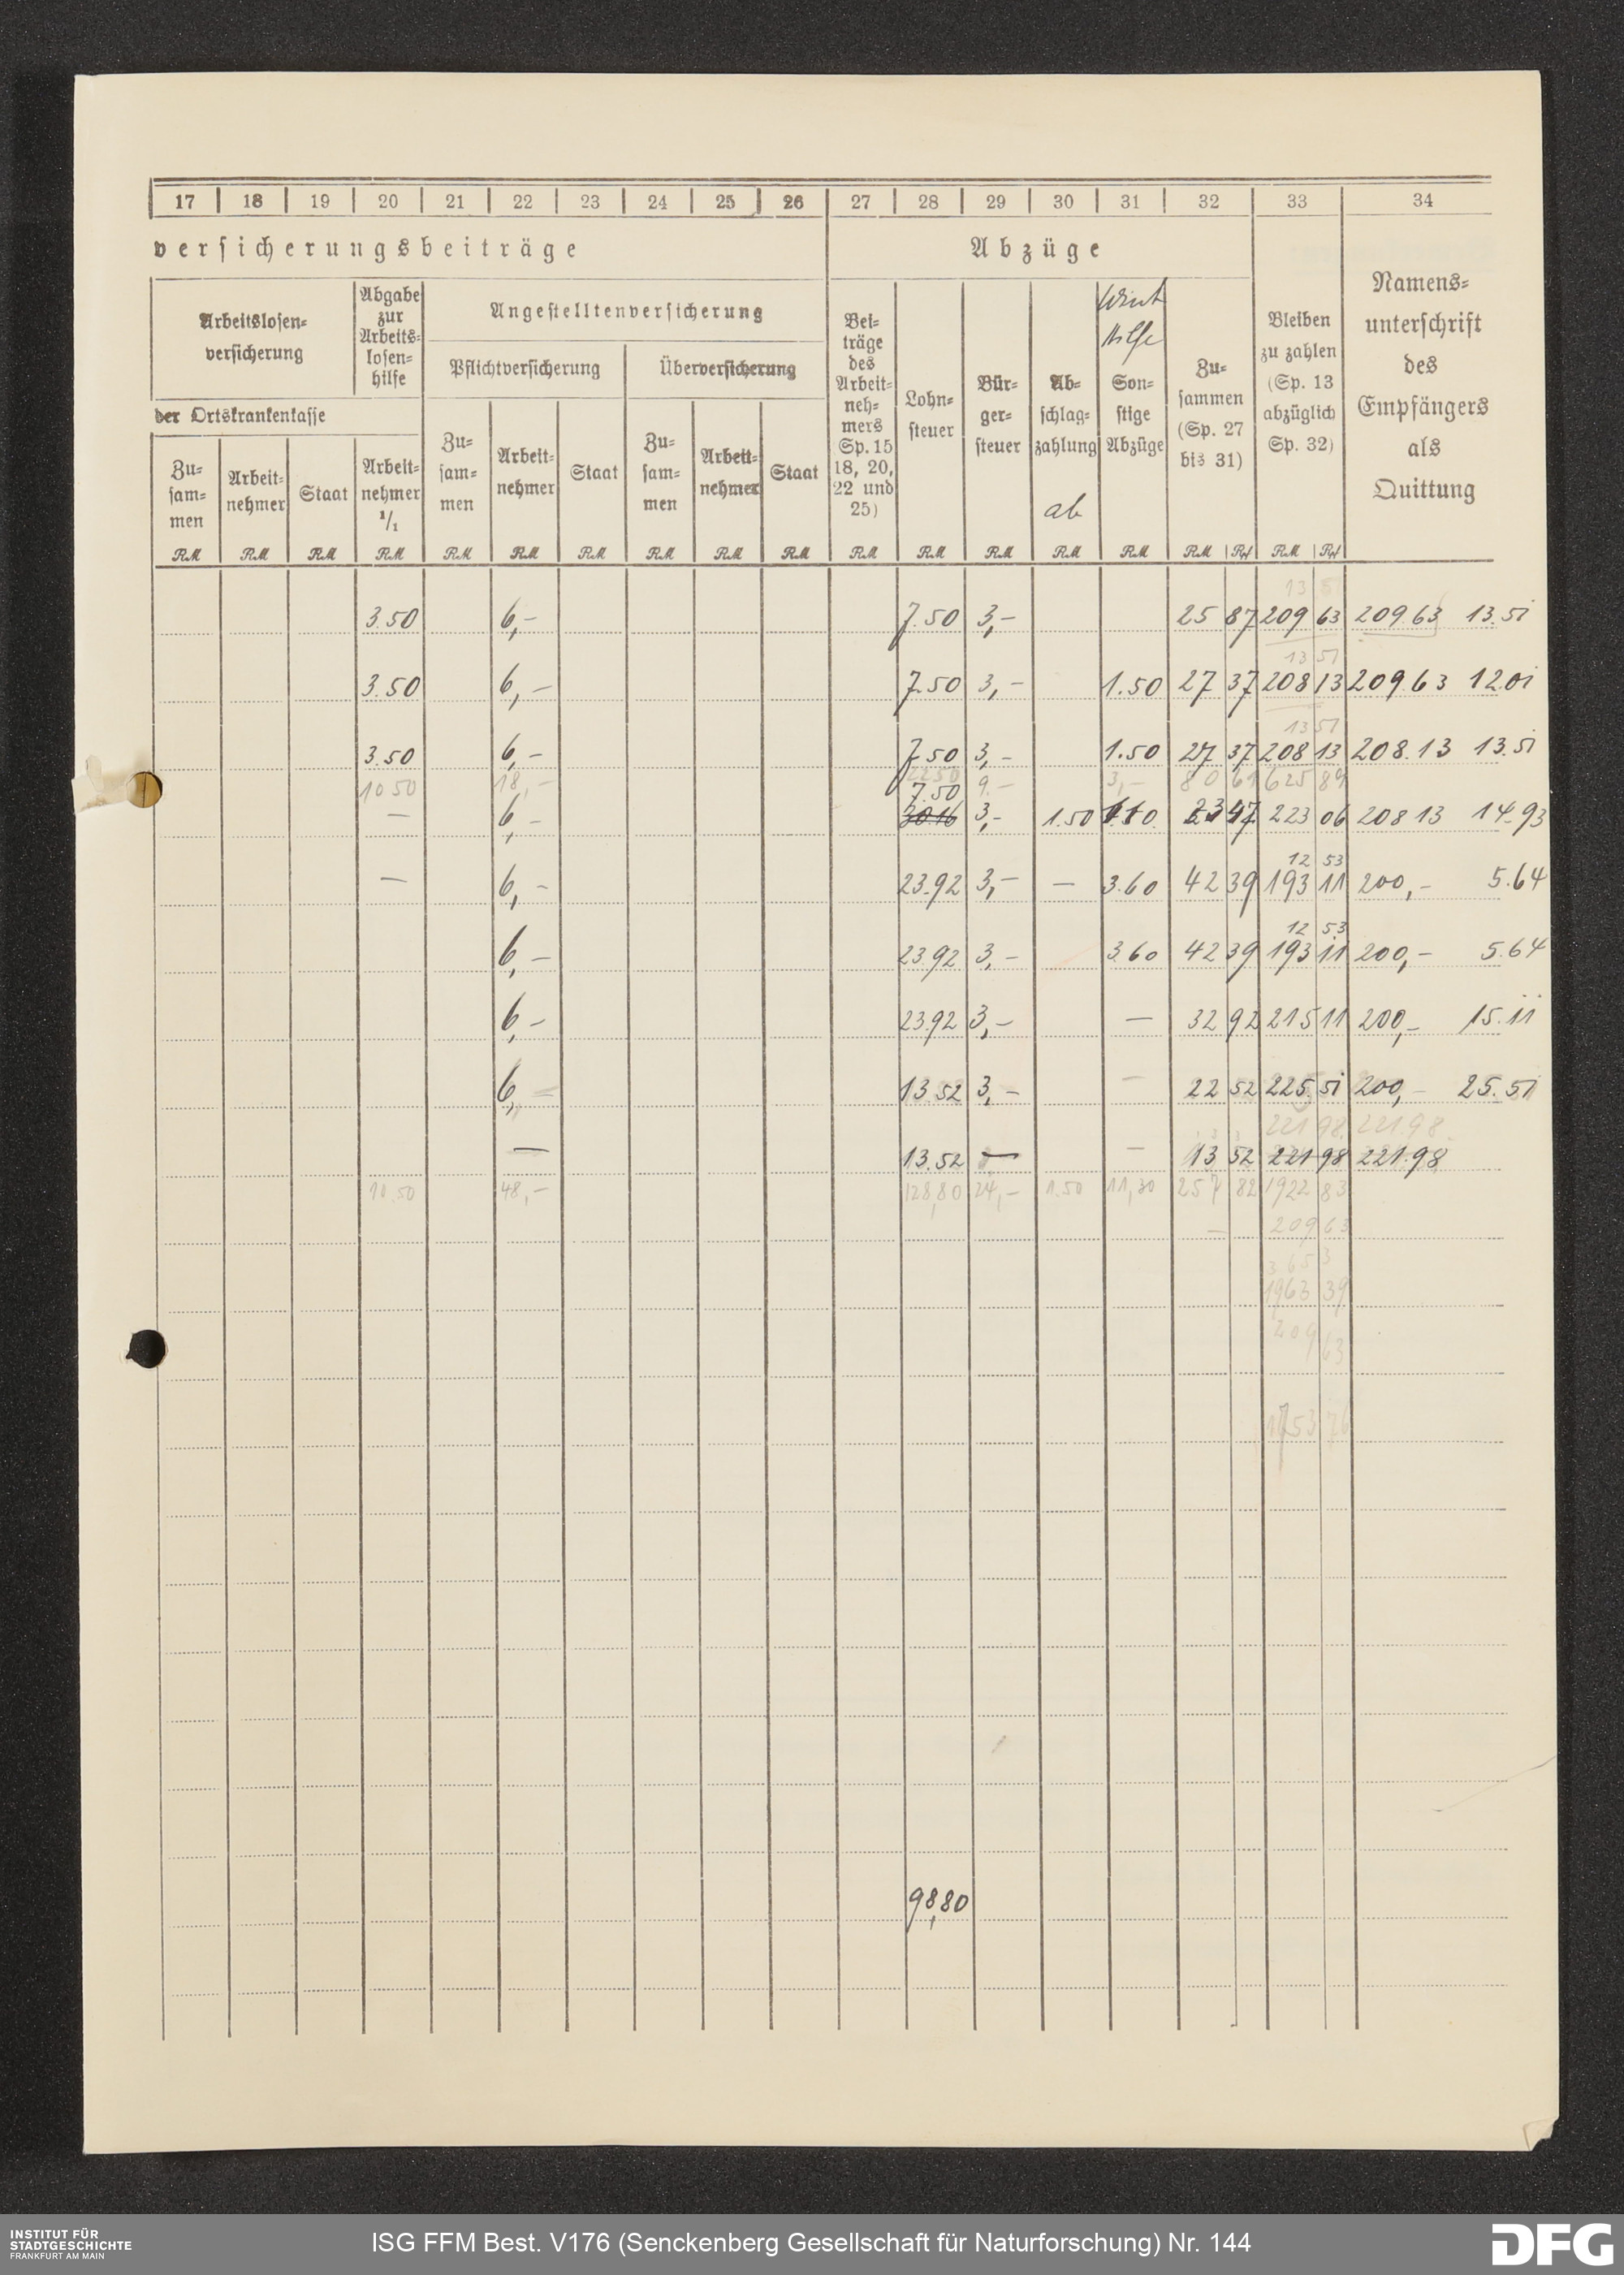 17 18 19 20 21 22 23 24 25 26 27 28 29 30 31 32 33 34
versicherungsbeiträge Abzüge Bleiben zu zahlen (Sp. 13 abzüglich Sp. 32) Namens-unterschrift des Empfängers als Quittung
Arbeitslosen-versicherung
Abgabe zur Arbeits-losen-hilfe
Angestelltenversicherung
Pflichtversicherung Überversicherung
der Ortskrankenkasse
Zu-sam-men Arbeit-nehmer Staat Arbeit-nehmer 1/1 Zu-sam-men Arbeit-nehmer Staat Zu-sam-men Arbeit-nehmer Staat
Bei-träge des Arbeit-neh-mers (Sp. 15 18, 20, 22 und 25)
Lohn-steuer
Bür-ger-steuer
Ab-schlag-zahlung
ab
Wint Hilfe
Son-stige Abzüge
Zu-sammen (Sp. 27 bis 31)
RM RM RM RM RM RM RM RM RM RM RM RM RM RM RM RM Rpf RM Rpf
3.50 6,- 7.50 3,- 25 87 209 63 209.63 13.51
13 51
3.50 6,- 7.50 3,- 1.50 27 37 208 13 209.63 12.01
13 51
3.50 6,- 7.50 3,- 1.50 27 37 208 13 208.13 13.51
10 50 18,- 22 50 9.- 3,- 80 61 625 89
7.50
- 6,- 30.16 3,- 1.50 23 47 223 06 208 13 14.93
12 53
- 6,- 23.92 3,- - 3.60 42 39 193 11 200,- 5.64
12 53
6,- 23.92 3,- 3.60 42 39 193 11 200,- 5.64
6,- 23.92 3,- - 32 92 215 11 200,- 15.11
6,- 13.52 3,- - 22 52 225 51 200,- 25.51
221 98 221.98
- 13.52 - - 13 52 221 98 221.98
10.50 48,- 128,80 24,- 1.50 11,30 257 82 1922 83
- 209 63
1963 39
209 63
1753 76
98,80
INSTITUT FÜR
STADTGESCHICHTE
FRANKFURT AM MAIN
ISG FFM Best. V176 (Senckenberg Gesellschaft für Naturforschung) Nr. 144
DFG